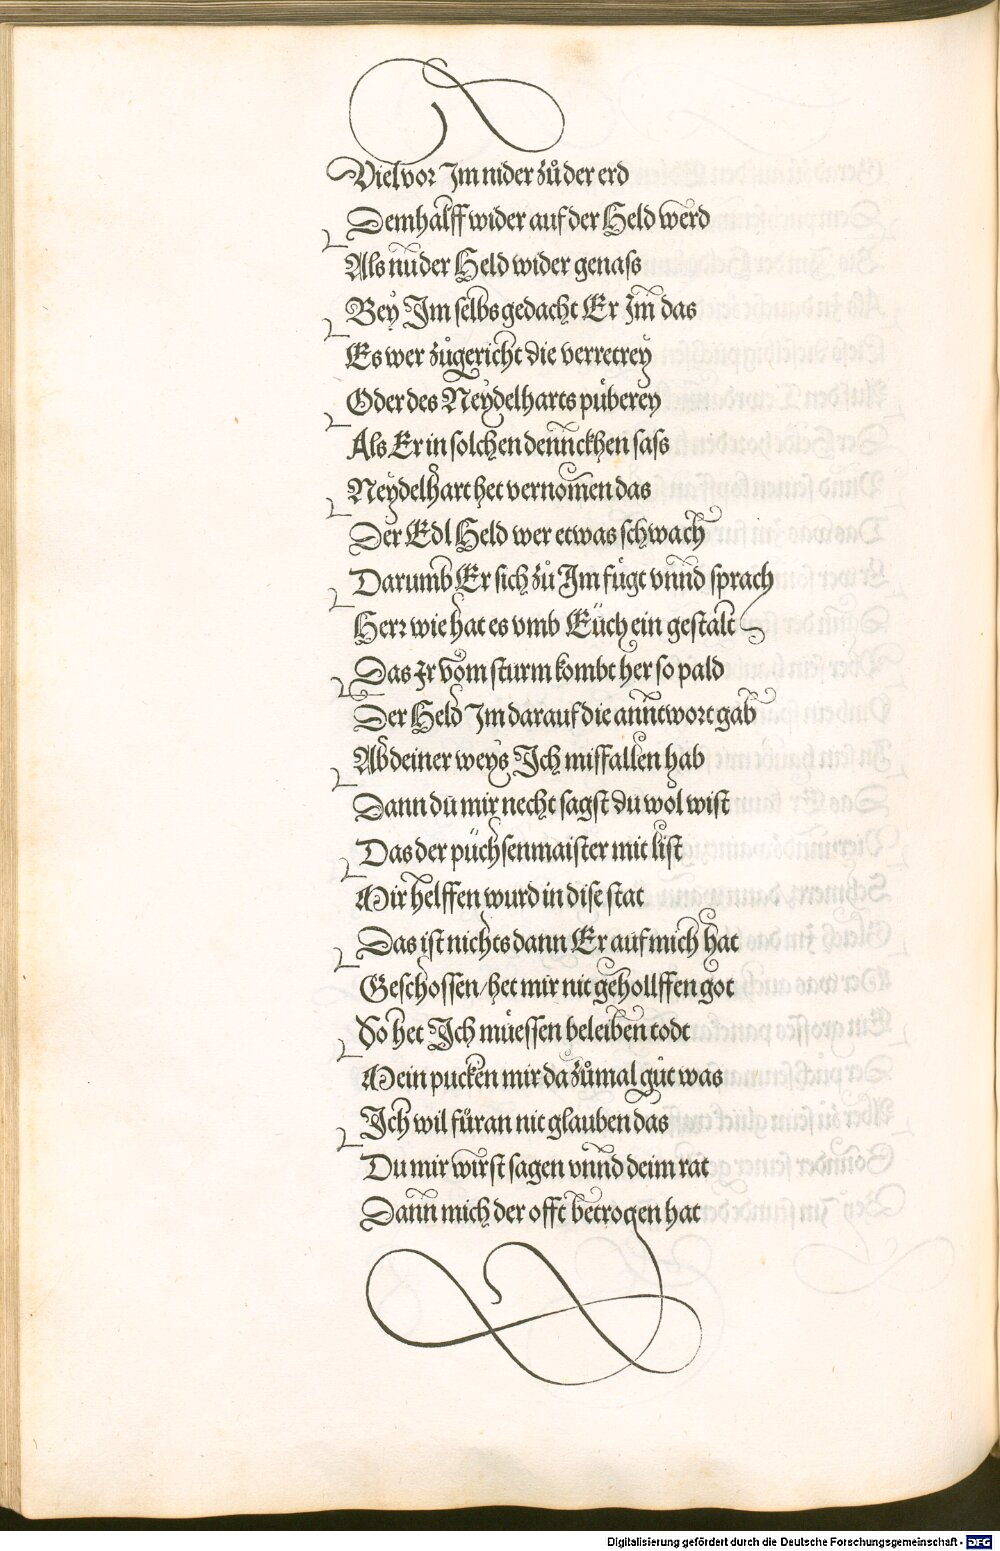 Viel vor Im nider zů der erd
Dem halff wider auf der Held werd
Als nŭ der Held wider genass
Bey Im selbs gedacht Er Im das
Es wer zůgericht die verretrey
Oder des Neydelharts püberey
Als Er in solchen denncken sass
Neydelhart het vernomen das
Der Edl Held wer etwas schwach
Darumb Er sich zů Im fügt vnnd sprach
Herr wie hat es vmb Eüch ein gestalt
Das Ir vom sturm kombt her so pald
Der Held Im darauf die anntwort gab
Ab deiner weys Ich missfallen hab
Dann du mir necht sagst du wol wist
Das der püchsenmaister mit list
Mir helffen wurd in dise stat
Das ist nichts dann Er auf mich hat
Geschossen / het mir nit gehollffen got
So het Ich müessen beleiben todt
Mein pucken mir da zůmal gůt was
Ich wil füran nit glauben das
Du mir wirst sagen vnnd deim rat
Dann mich der offt betrogen hat
Digitalisierung gefördert durch die Deutsche Forschungsgemeinschaft - DFG